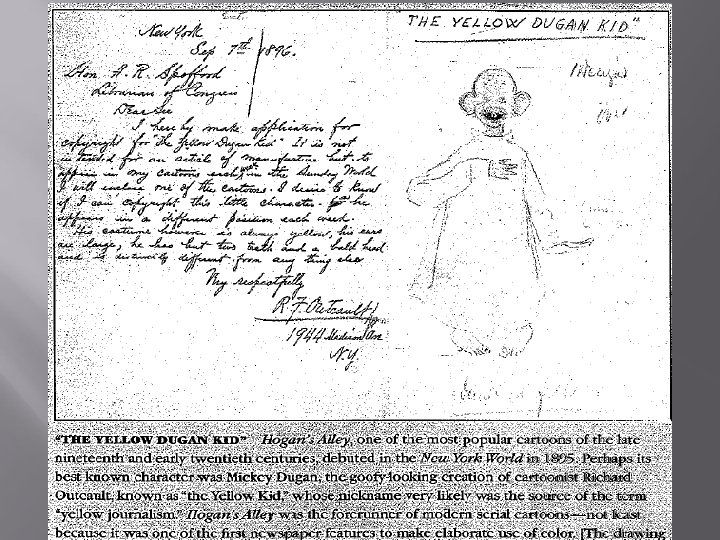 New York
Sep 7th 1896.
Hon. A. R. Spofford
Librarian of Congress
Dear Sir
I hereby make application for
copyright for "The Yellow Dugan Kid" It is not
intended for an article of manufacture but to
appear in my cartoons each week in the Sunday World
I will enclose one of the cartoons. I desire to know
if I can copyright this little character. he
appears in a different position each week.
His costume however is always yellow, his ears
are large, he has but two teeth and a bald head
and is distinctly different from any thing else
Very respectfully
R. F. Outcault
1944 Madison Ave
N.Y.
THE YELLOW DUGAN KID"
"THE YELLOW DUGAN KID" Hogan's Alley, one of the most popular cartoons of the late
nineteenth and early twentieth centuries, debuted in the New York World in 1895. Perhaps its
best known character was Mickey Dugan, the goofy-looking creation of cartoonist Richard
Outcault, known as "the Yellow Kid," whose nickname very likely was the source of the term
"yellow journalism." Hogan's Alley was the forerunner of modern serial cartoons—not least
because it was one of the first newspaper features to make elaborate use of color. [The drawing